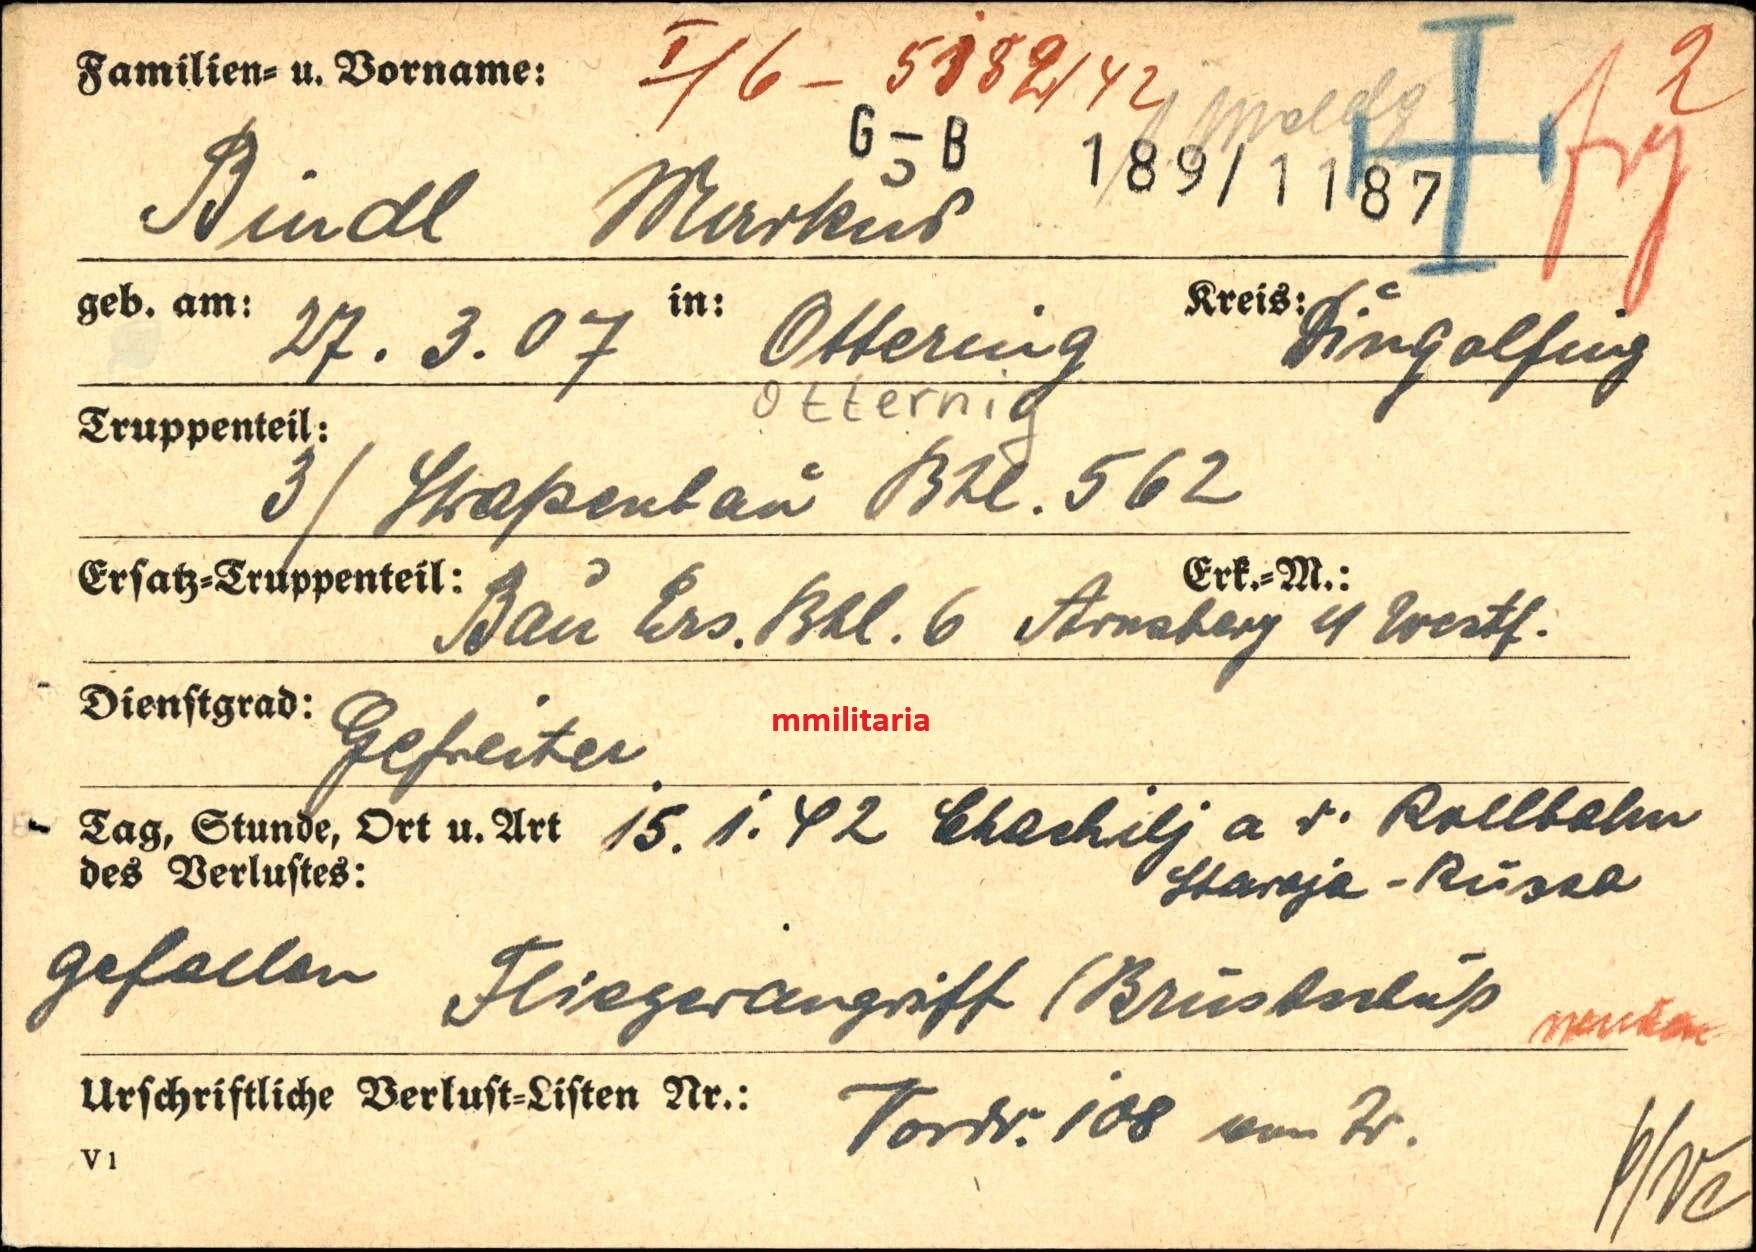 Familien- u. Vorname: I/6 - 5182/42 2
G-B 189/1187
Bindl Markus
geb. am: 27. 3. 07 in: Ottering Kreis: Dingolfing
Otternig
Truppenteil:
3/ Straßenbau Btl. 562
Ersatz-Truppenteil: Erk.-M.:
Bau Ers. Btl. 6 Arnsberg Westf.
Dienstgrad: Gefreiter
mmilitaria
Tag, Stunde, Ort u. Art 15. 1. 42 a d. Rollbahn
des Verlustes: Staraja - Russa
gefallen Fliegerangriff (Brustschuß
wenden
Urschriftliche Verlust-Listen Nr.: Vordr. 108
V 1